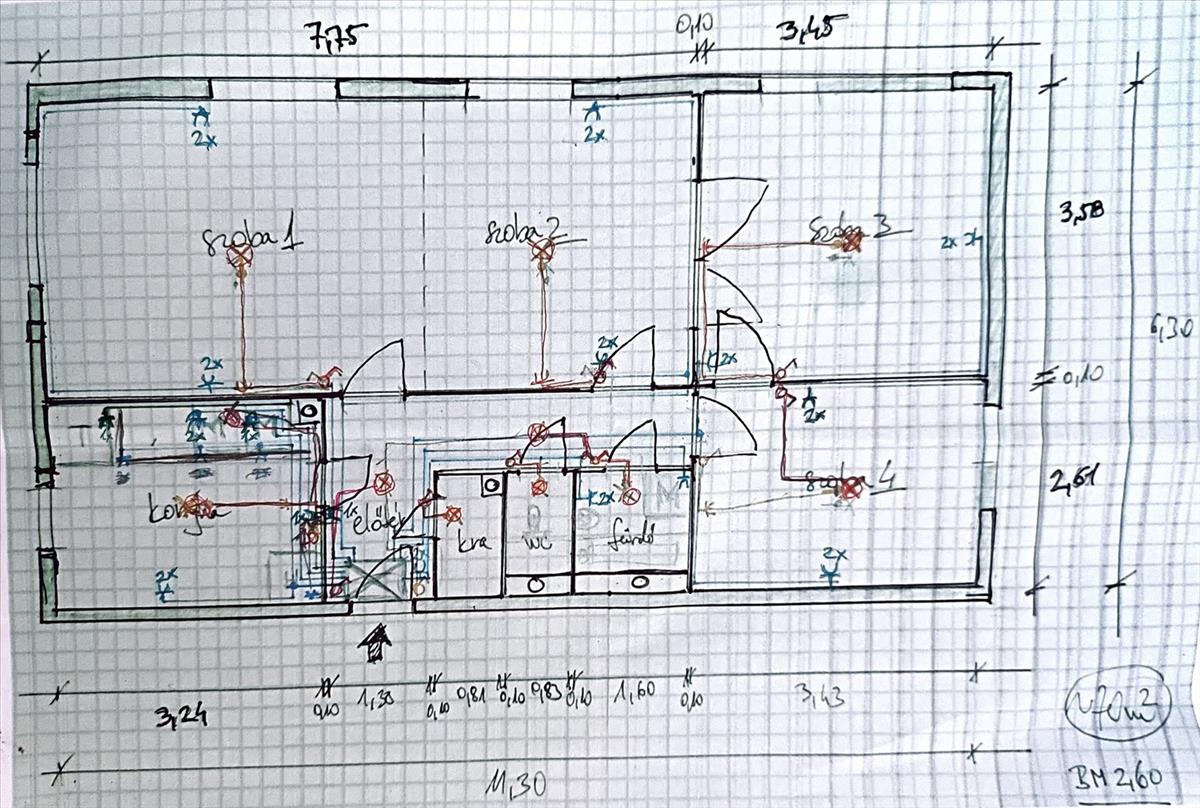 7,75
0,10
3,45
2x
2x
3,58
szoba 1
szoba 2
szoba 3
2x
6,30
2x
2x
2x
0,10
2x
2x
2x
1x
konyha
1x
előtér
kra
wc
2x
fürdő
M
szoba 4
2,61
2x
2x
3,24
0,10
1,38
0,10
0,81
0,10
0,83
0,10
1,60
0,10
3,43
~70m²
11,30
BM 2,60